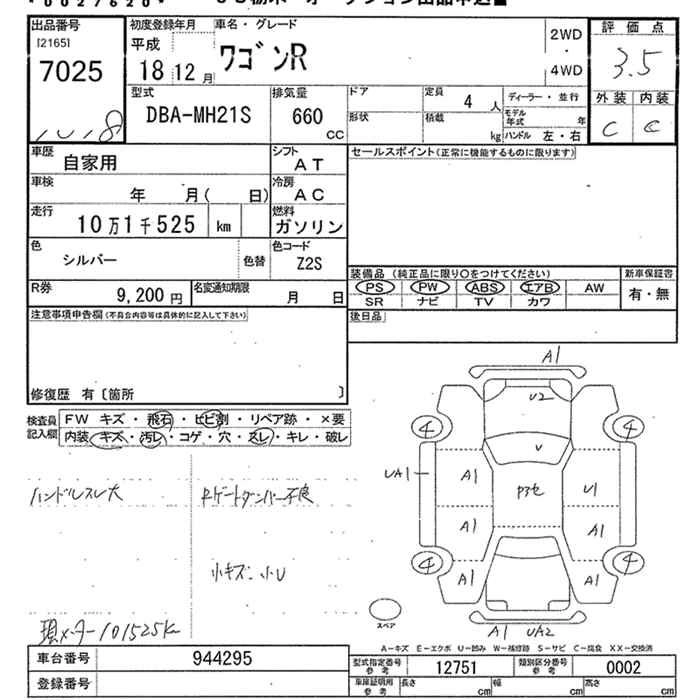 *0027620*
出品番号
[2165]
7025
初度登録年月
平成
18 12 月
車名・グレード
ワゴンR
2WD
・
4WD
評価点
3.5
外装 内装
C C
型式
DBA-MH21S
排気量
660
CC
ドア
形状
定員
4 人
積載
kg
ディーラー・並行
モデル年式 年
ハンドル 左・右
車歴
自家用
シフト
AT
セールスポイント(正常に機能するものに限ります)
車検
年 月( 日)
冷房
AC
走行
10万1千525 km
燃料
ガソリン
色
シルバー
色替
色コード
Z2S
R券
9,200 円
名変通知期限
月 日
装備品(純正品に限り○をつけてください)
PS PW ABS エアB AW
SR ナビ TV カワ
新車保証書
有・無
後日品
注意事項申告欄(不具合内容等は具体的に記入して下さい)
修復歴 有〔箇所 〕
検査員記入欄
FW キズ・飛石・ヒビ割・リペア跡・×要
内装 キズ・汚レ・コゲ・穴・スレ・キレ・破レ
ハンドルスレ大
Rゲートダンパー不良
小キズ・小U
現メーター101525K
A1
U2
4 4
U
UA1
A1
P3セ
U1
A1 A1
4 4
A1 A1
スペア
A1 UA2
A－キズ E－エクボ U－凹み W－補修跡 S－サビ C－腐食 XX－交換済
車台番号
944295
登録番号
型式指定番号
参考
12751
類別区分番号
参考
0002
車庫証明用
参考
長さ cm
幅 cm
高さ cm